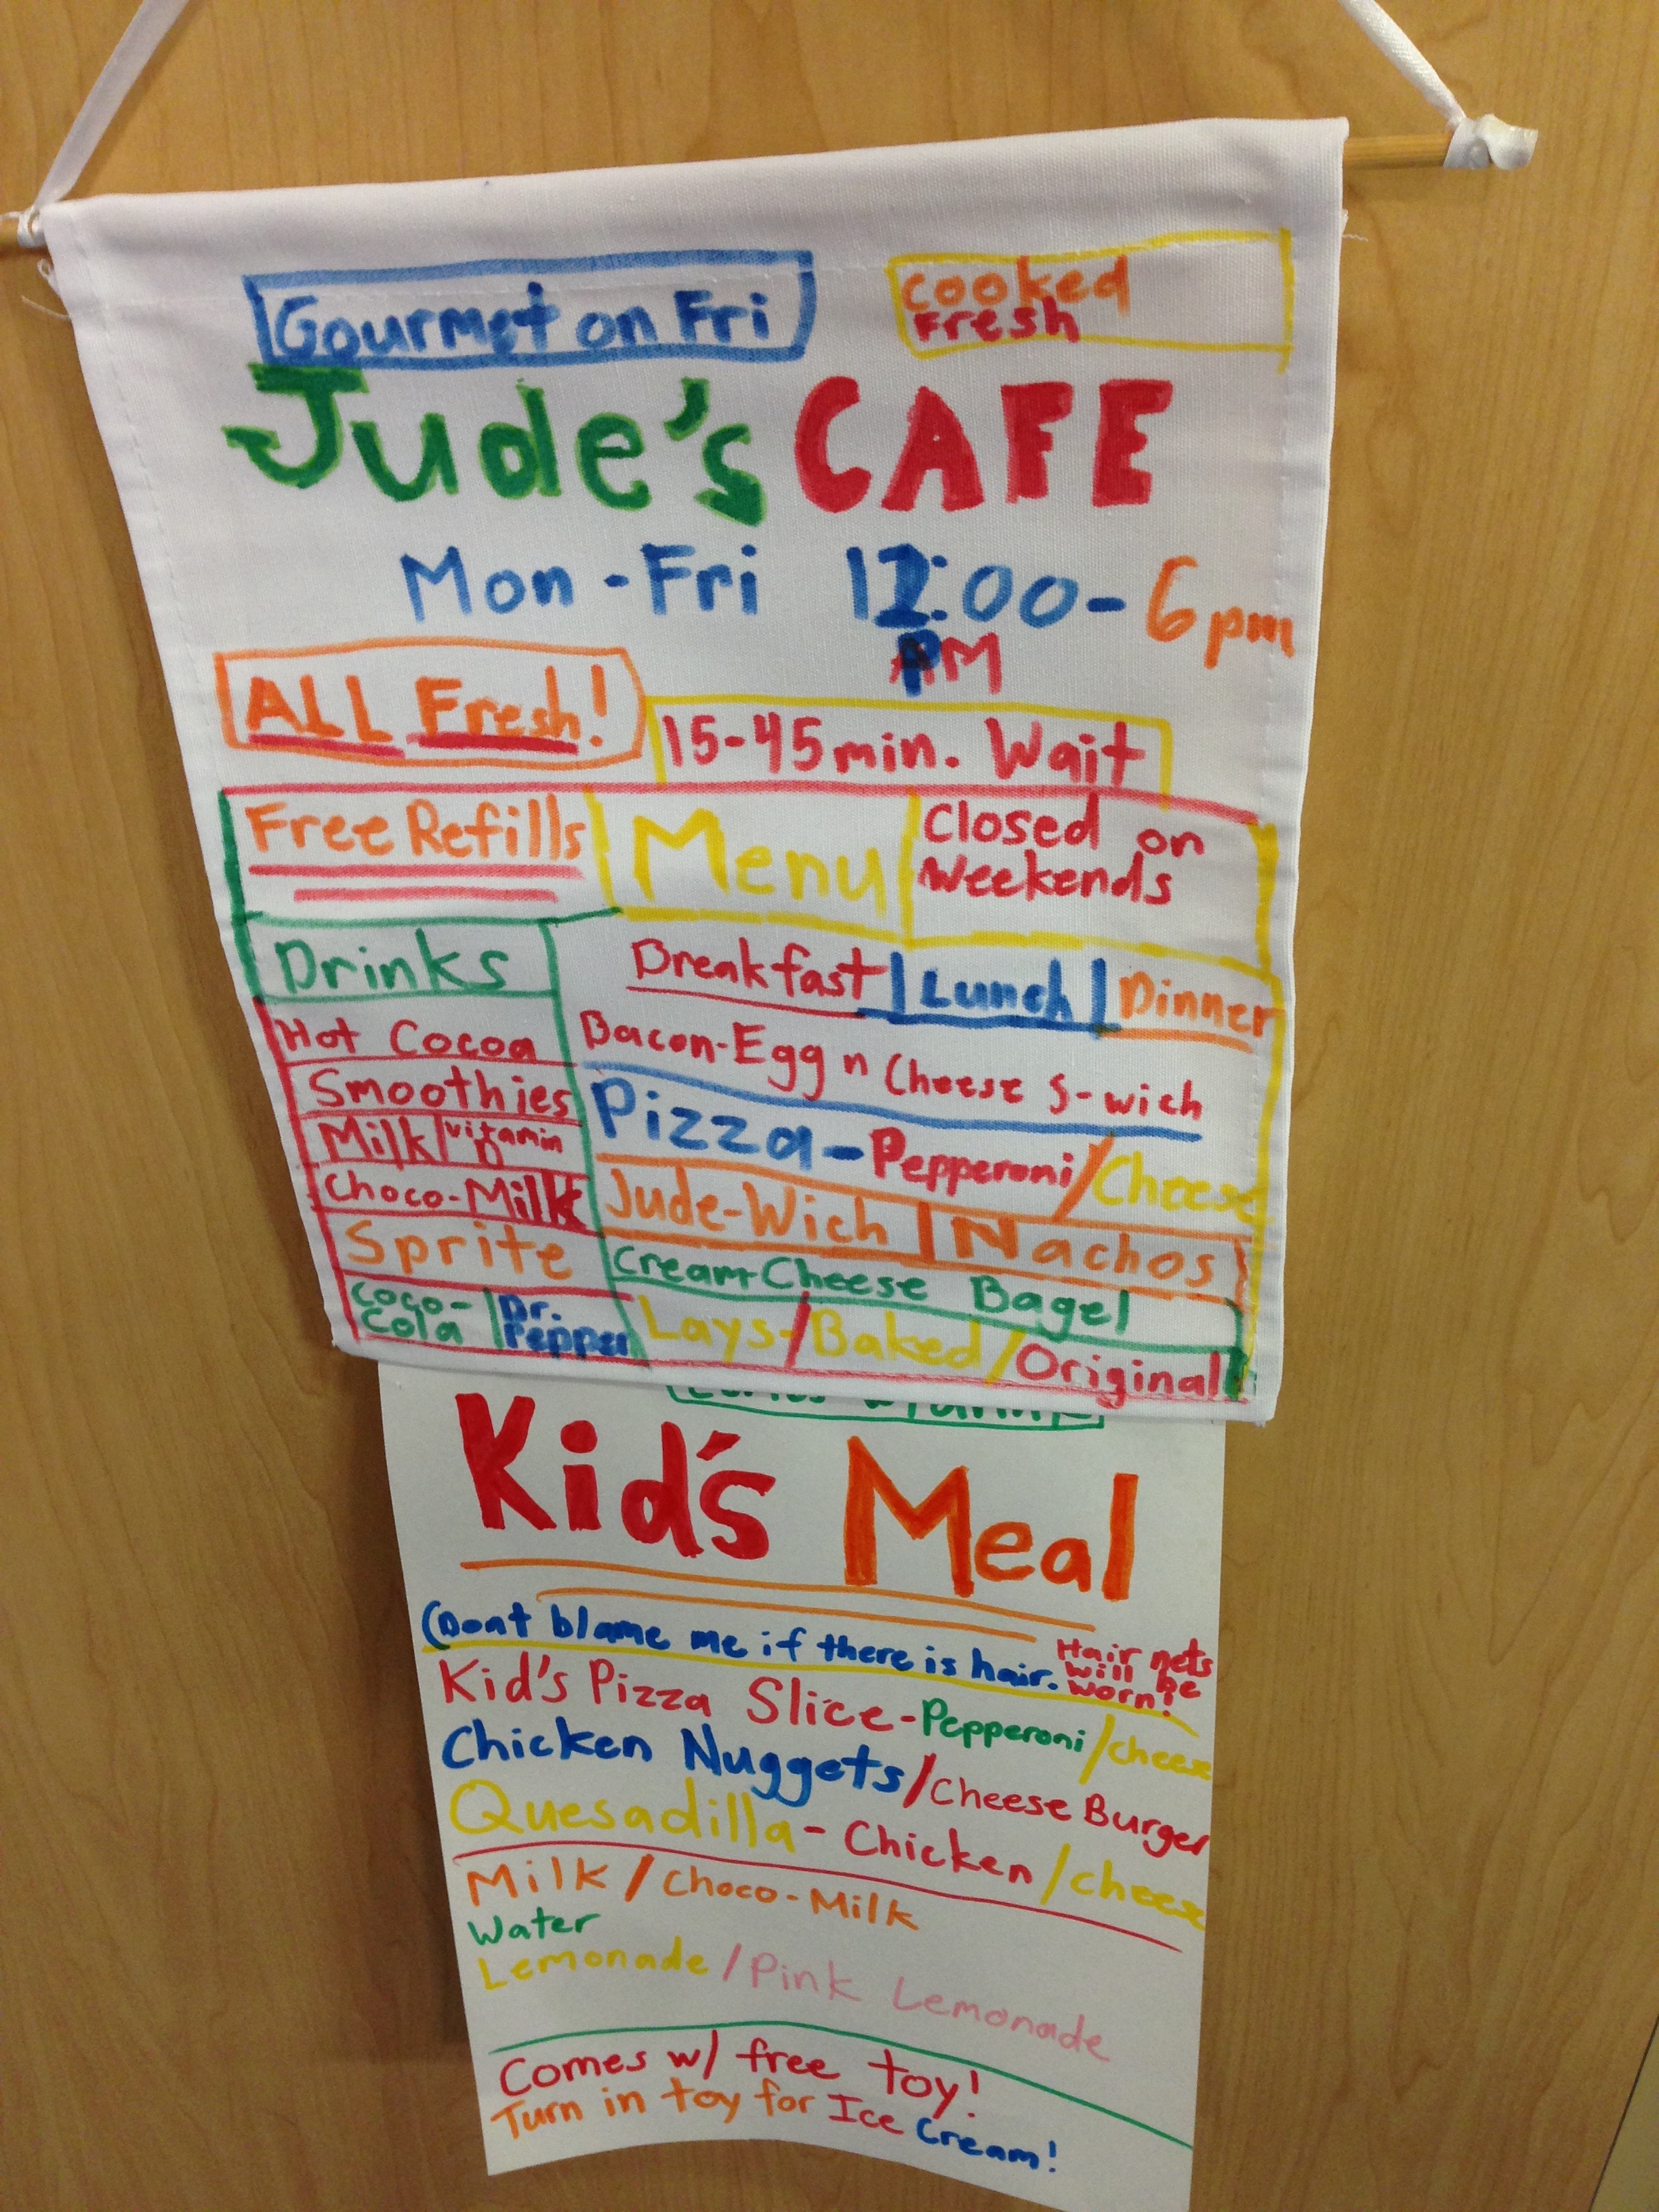 Gourmet on Fri
cooked
Fresh
Jude's CAFE
Mon-Fri 12:00-6pm
PM
ALL Fresh!
15-45min. Wait
Free Refills
Menu
Closed on
Weekends
Drinks
Hot Cocoa
Smoothies
Milk/vitamin D
Choco-Milk
Sprite
Coco-
Cola
Dr.
Pepper
Breakfast|Lunch|Dinner
Bacon-Egg n Cheese S-wich
Pizza-Pepperoni/Cheese
Jude-Wich | Nachos
Cream-Cheese Bagel
Lays-/Baked/Original
Kid's Meal
(Dont blame me if there is hair.
Hair nets
will be
worn!
Kid's Pizza Slice-Pepperoni/cheese
Chicken Nuggets/Cheese Burger
Quesadilla-Chicken/cheese
Milk/Choco-Milk
Water
Lemonade/Pink Lemonade
Comes w/ free toy!
Turn in toy for Ice Cream!